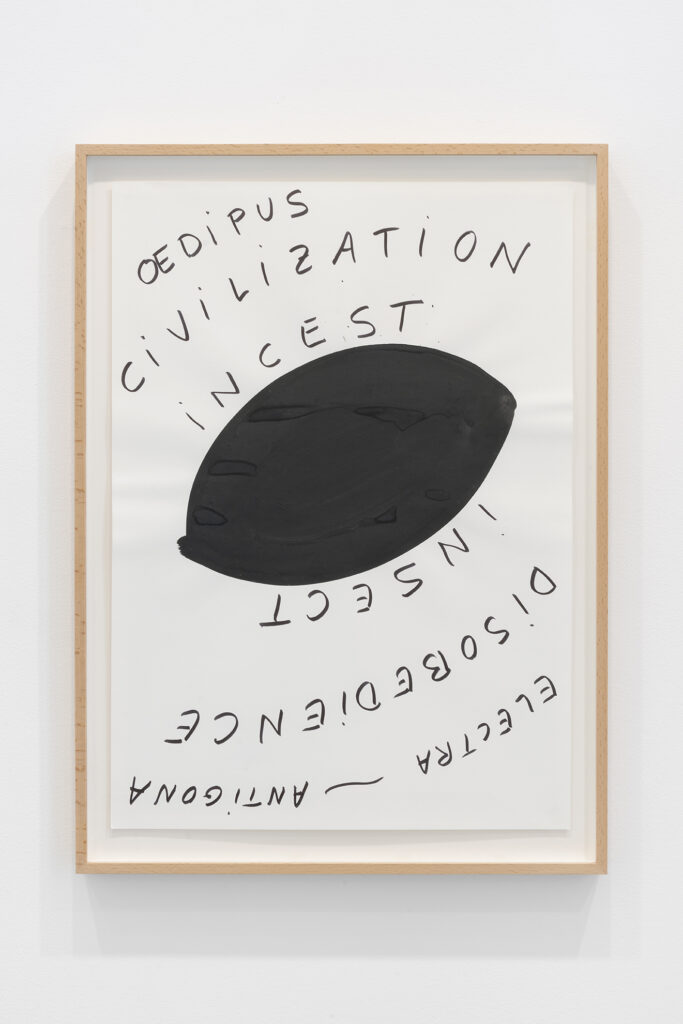 OEDiPUS
CiViLiZATiON
iNCEST
iNSECT
DiSOBEDiENCE
ELECTRA — ANTiGONA